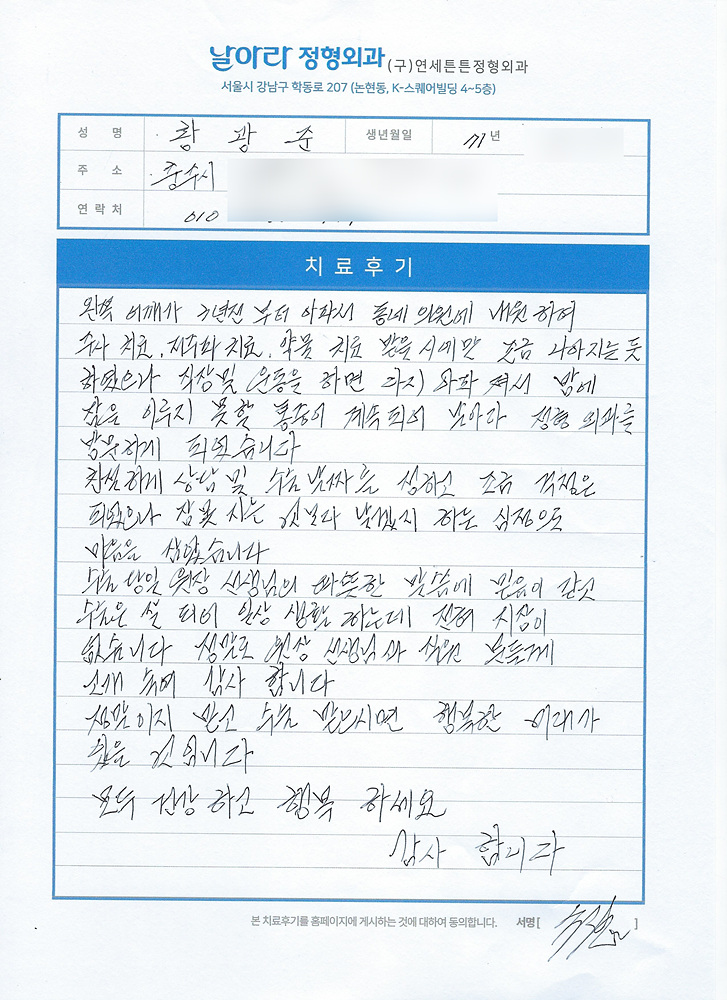 날아라 정형외과 (구)연세튼튼정형외과
서울시 강남구 학동로 207 (논현동, K-스퀘어빌딩 4~5층)
성 명 황 광 준 생년월일 71년
주 소 충주시
연락처 010
치료후기
왼쪽 어깨가 2년전 부터 아파서 동네 의원에 내원 하여
주사 치료, 체외파 치료, 약물 치료 받을 시에만 조금 나아지는 듯
하였으나 직장 및 운동을 하면 다시 악화 져서 밤에
잠을 이루지 못할 통증이 계속되어 날아라 정형외과를
방문하게 되었습니다
친절하게 상담 및 수술 날짜를 정하고 조금 걱정은
되었으나 잠 못 자는 것보다 낫겠지 하는 심정으로
마음을 잡았습니다
수술 당일 원장 선생님의 따뜻한 말씀에 믿음이 갔고
수술은 잘 되어 일상 생활 하는데 전혀 지장이
없습니다 정말로 원장 선생님과 직원 분들께
고개 숙여 감사 합니다
정말이지 믿고 수술 받으시면 행복한 미래가
있을 것 입니다
모두 건강 하고 행복 하세요
감사 합니다
본 치료후기를 홈페이지에 게시하는 것에 대하여 동의합니다. 서명 [ ]